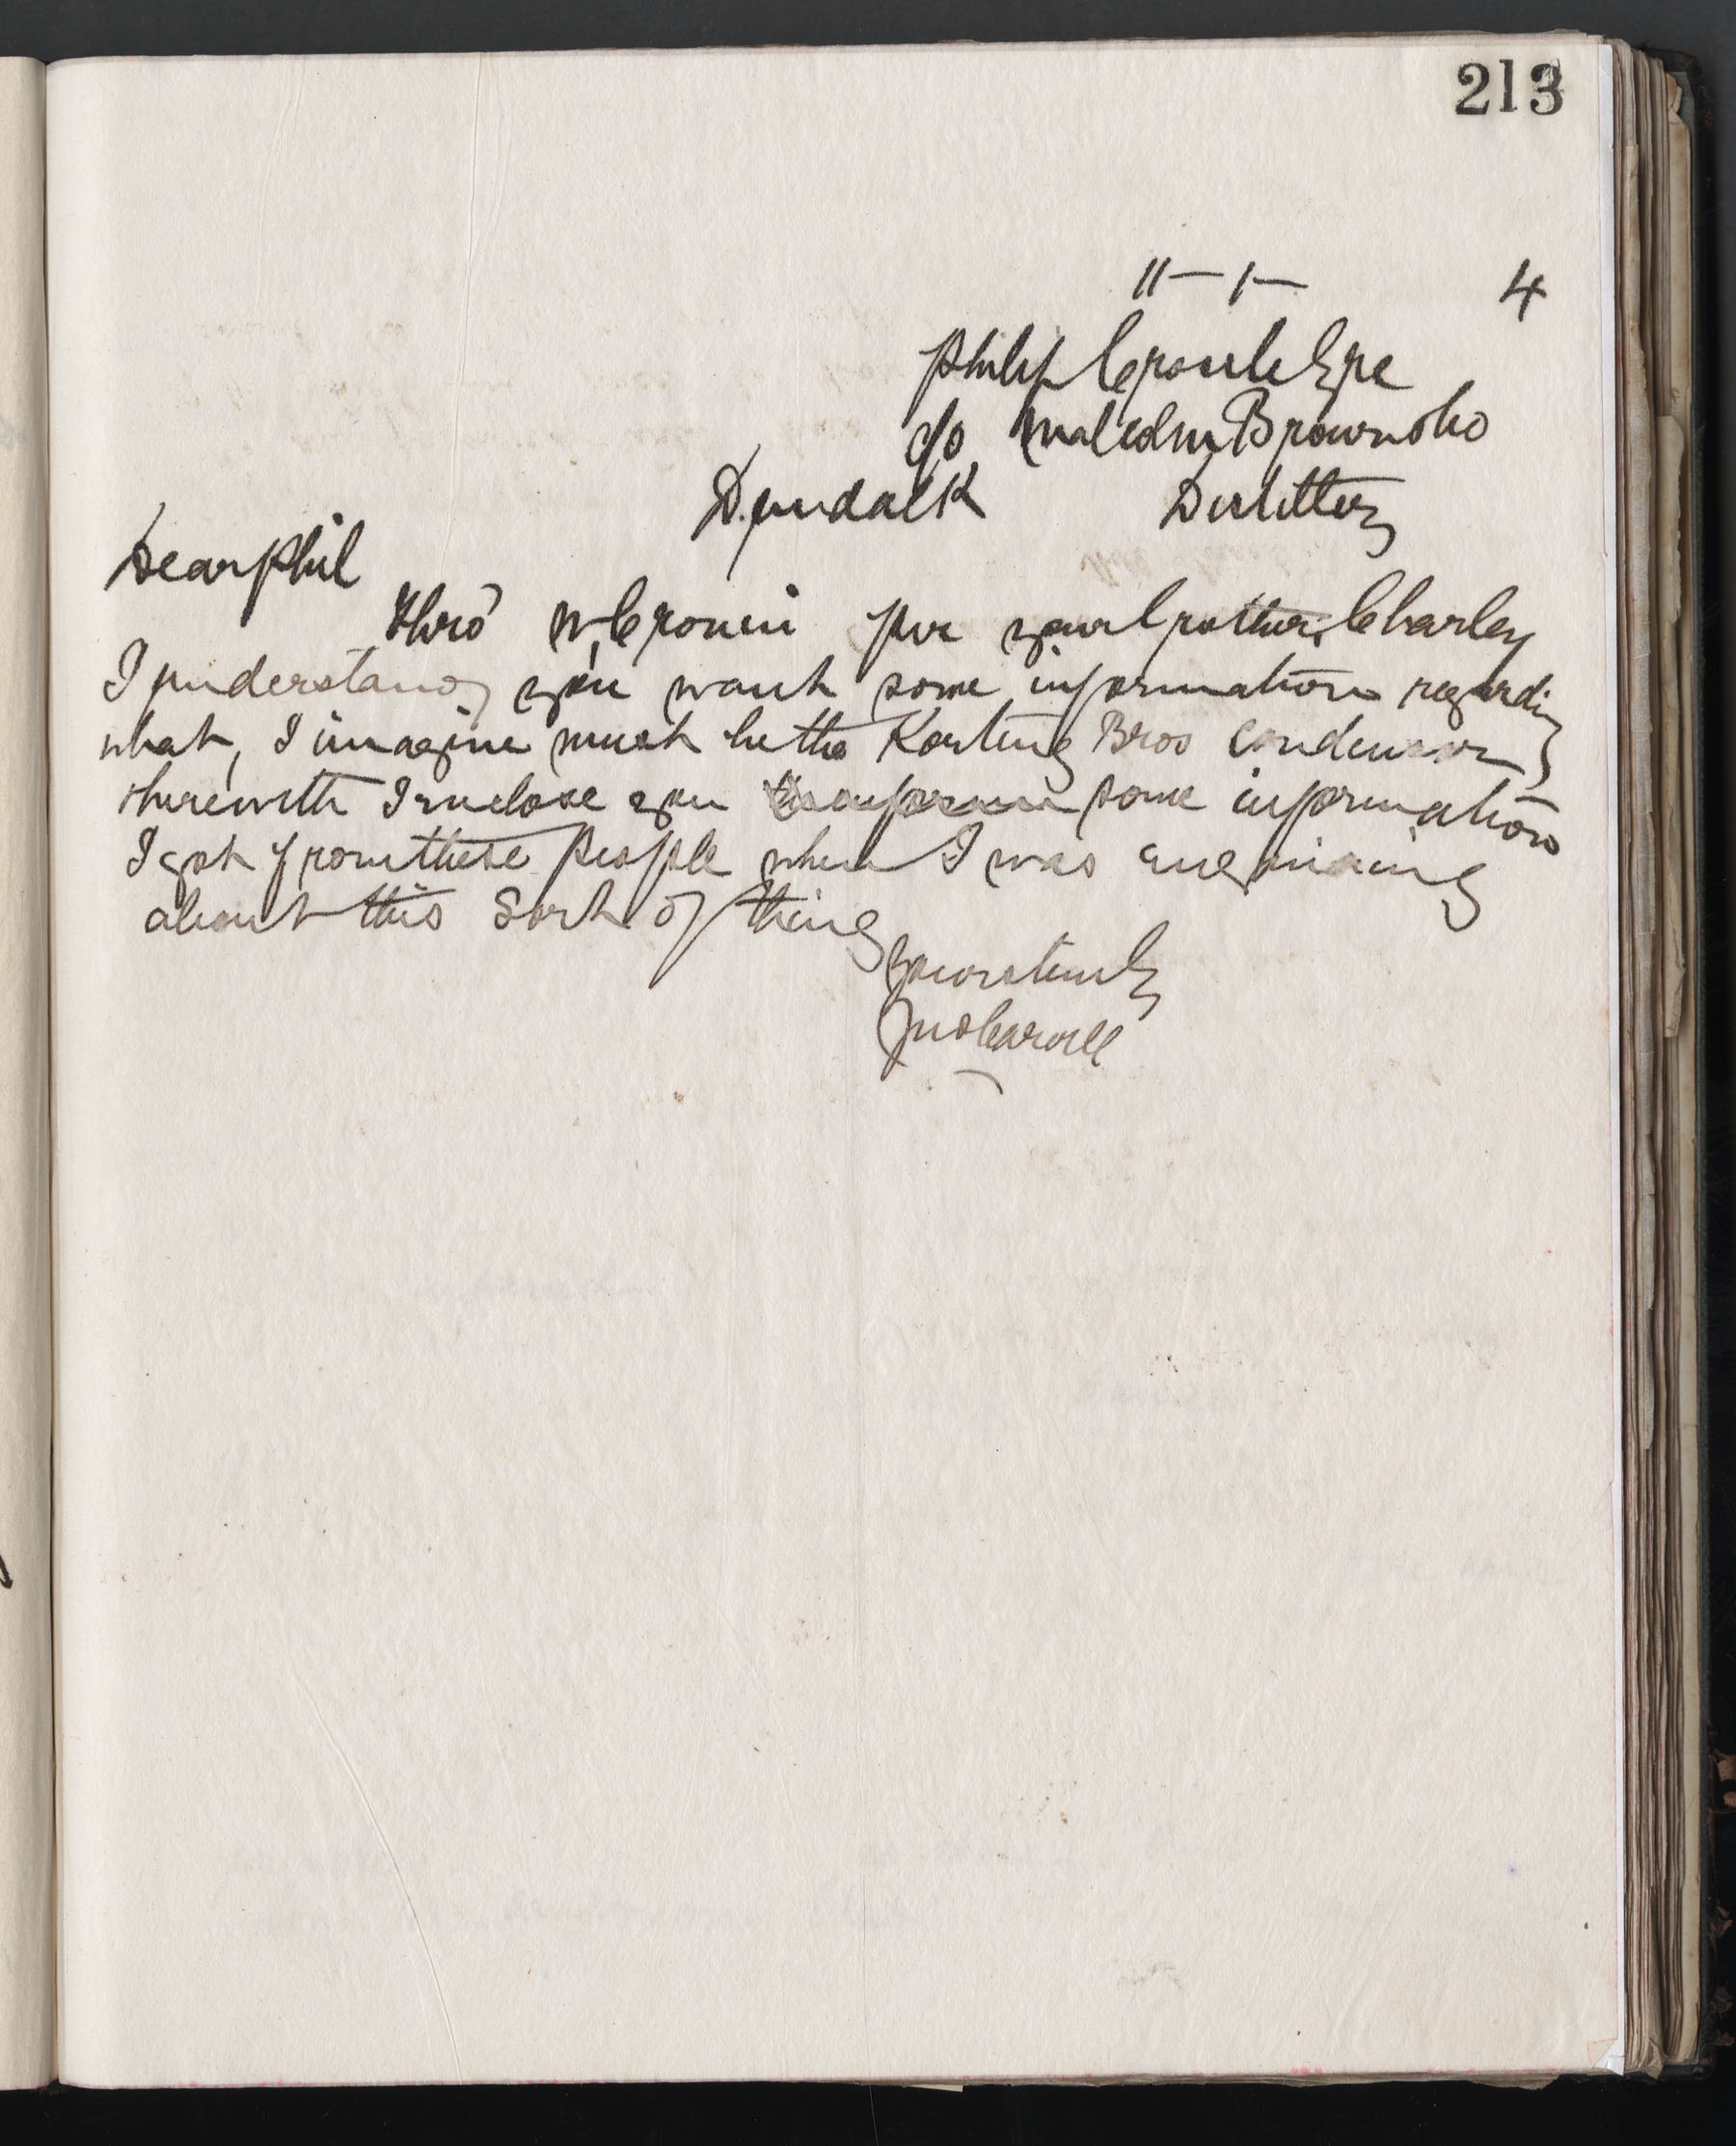 213
11 — 1 — 4
Philip Esqre
c/o Malcolm Brown & Co
Dundalk Distillery
Dear Phil
Thro' W, Cronin per your brother, Charley
I understand you want some information regarding
what, I imagine must be the Korting Bros Condensor,
herewith I enclose you some information
I got from these people when I was enquiring
about this Sort of thing
Yours truly
Jno Carroll